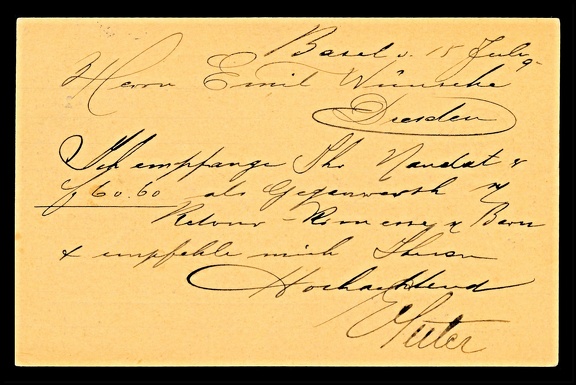 Basel d. 15 July
Herrn Emil Wünsche
Dresden
Ich empfange Ihr Mandat v
f 60.60 als Gegenwerth
Retour-Rimesse Bern
& empfehle mich Ihnen
Hochachtend